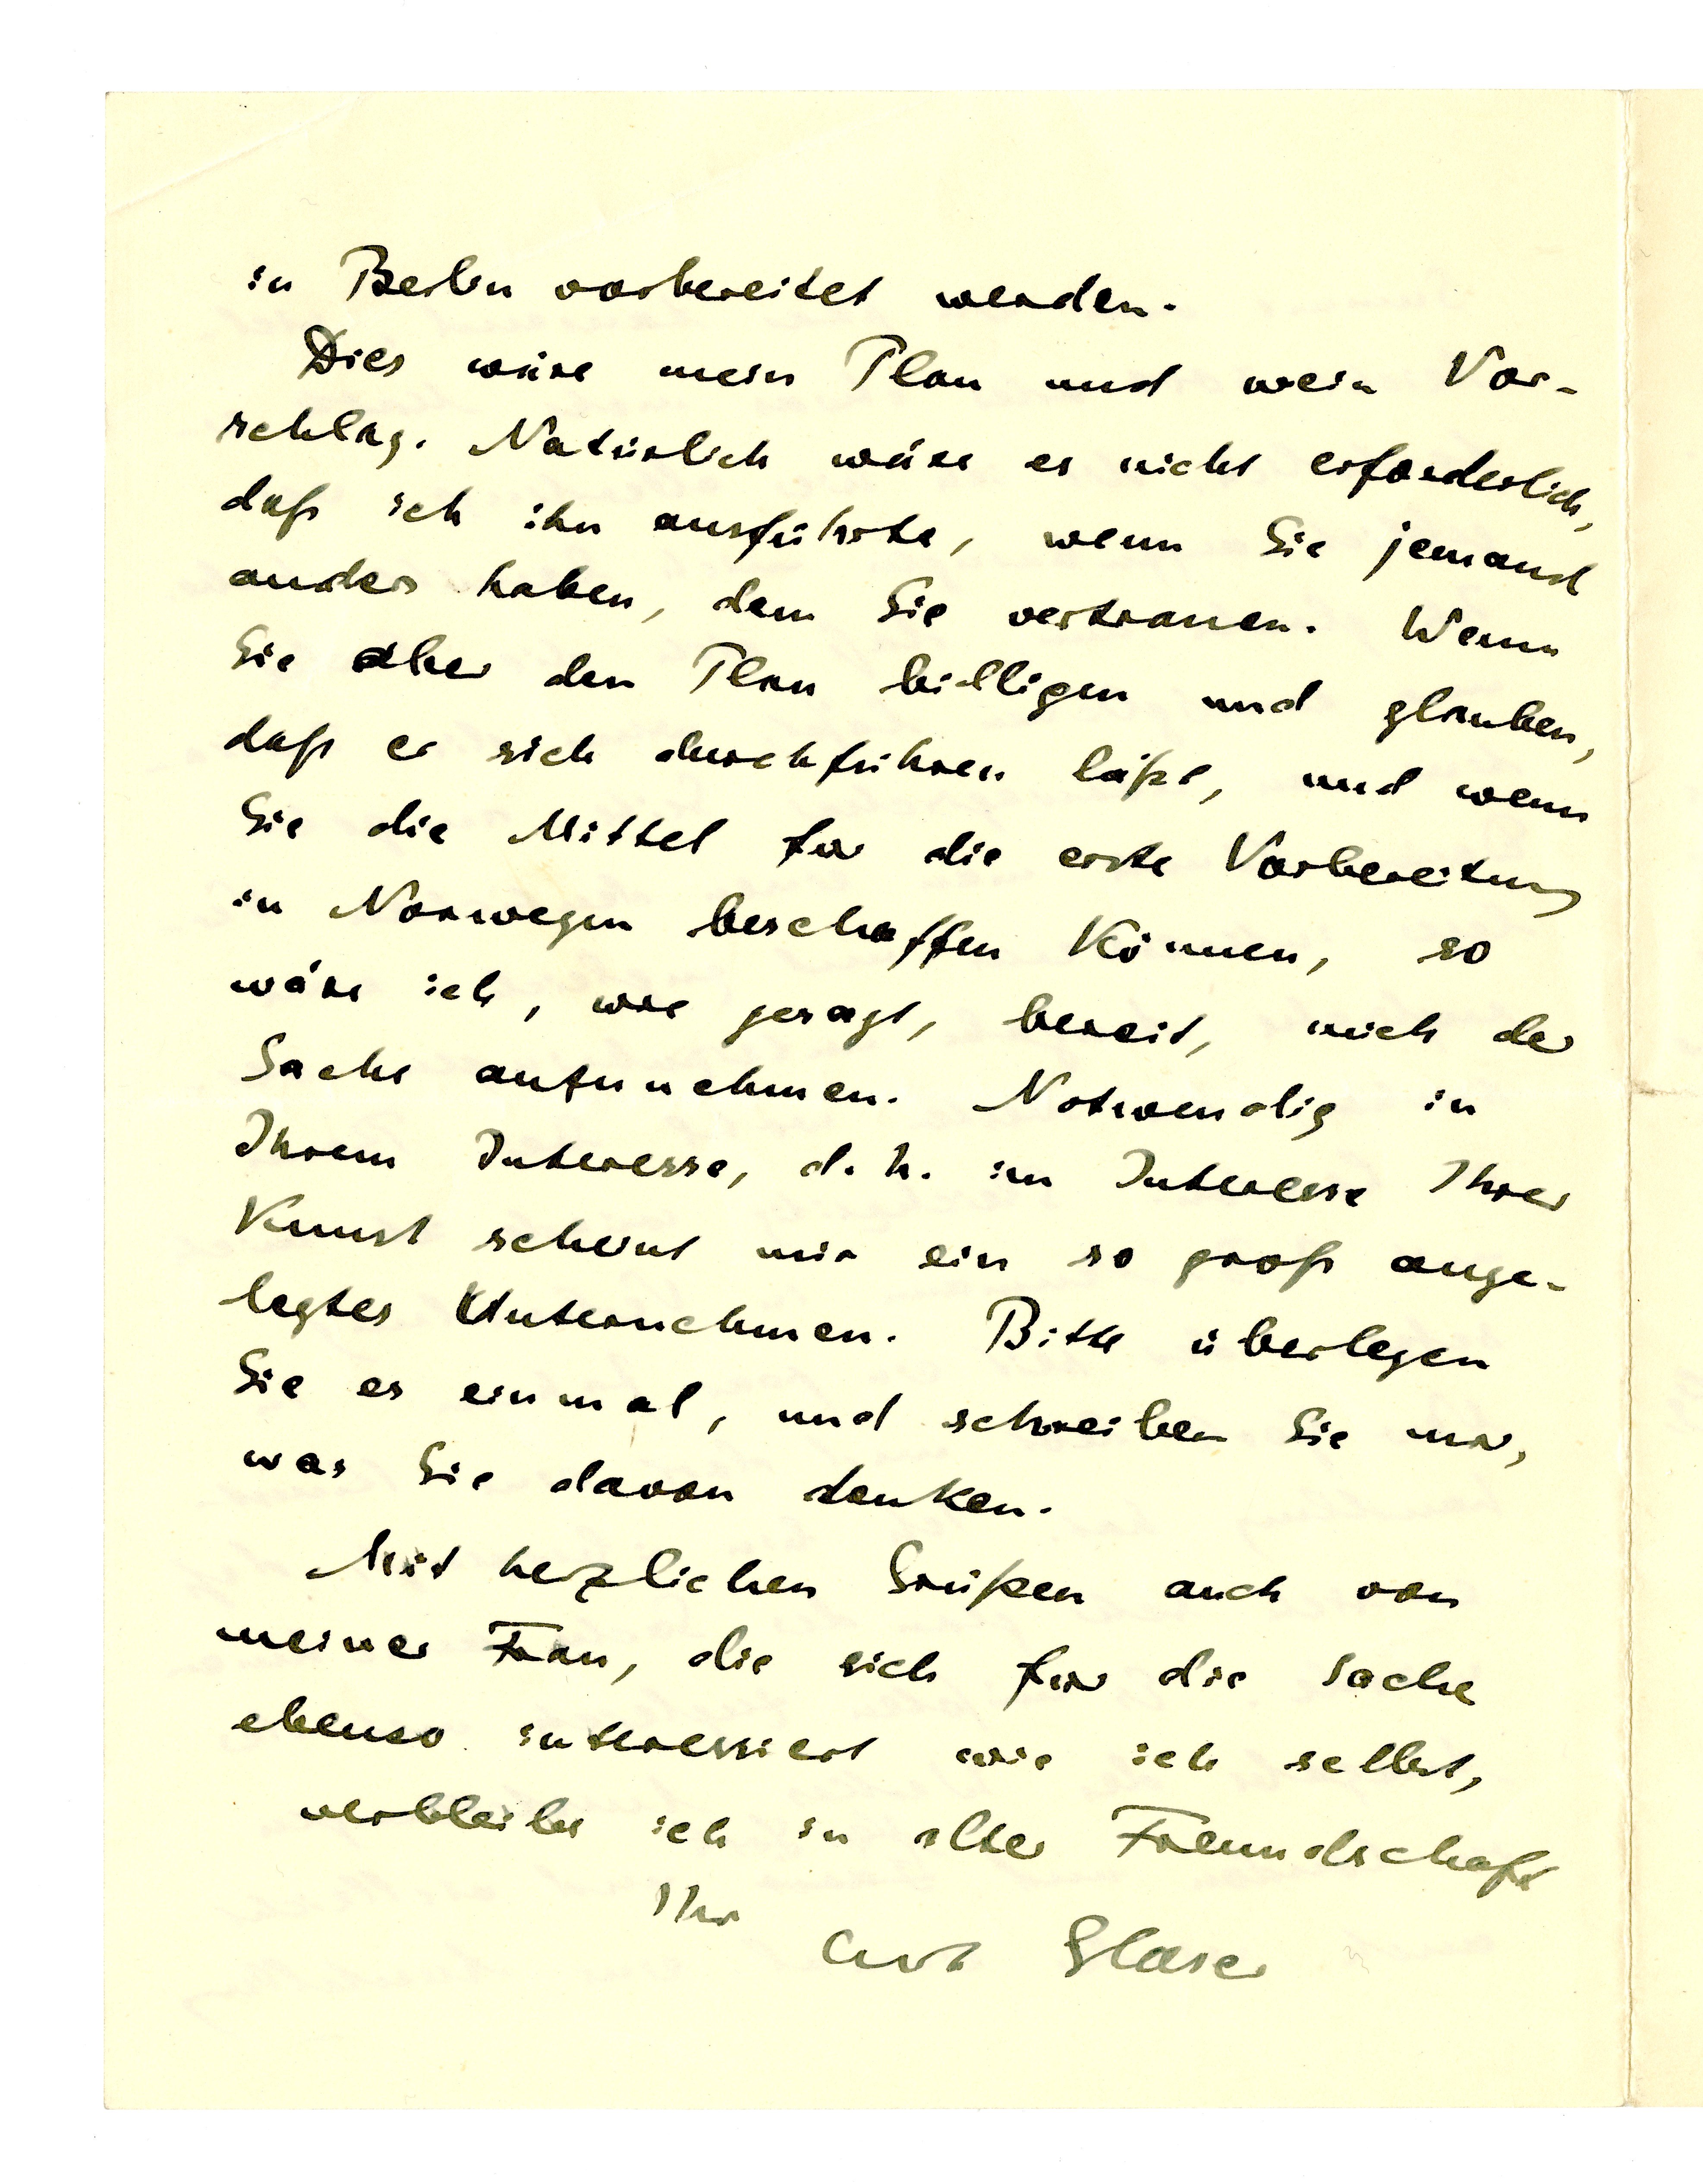 in Berlin vorbereitet werden.
Dies wäre mein Plan und mein Vor-
schlag. Natürlich wäre es nicht erforderlich,
daß ich ihn ausführte, wenn Sie jemand
anders haben, dem Sie vertrauen. Wenn
Sie aber den Plan billigen und glauben,
daß er sich durchführen läßt, und wenn
Sie die Mittel für die erste Vorbereitung
in Norwegen beschaffen können, so
wäre ich, wie gesagt, bereit, mich der
Sache anzunehmen. Notwendig in
Ihrem Interesse, d. h. im Interesse Ihrer
Kunst scheint mir ein so groß ange-
legtes Unternehmen. Bitte überlegen
Sie es einmal, und schreiben Sie mir,
was Sie davon denken.
Mit herzlichen Grüßen auch von
meiner Frau, die sich für die Sache
ebenso interessiert wie ich selbst,
verbleibe ich in alter Freundschaft
Ihr
Curt Glaser